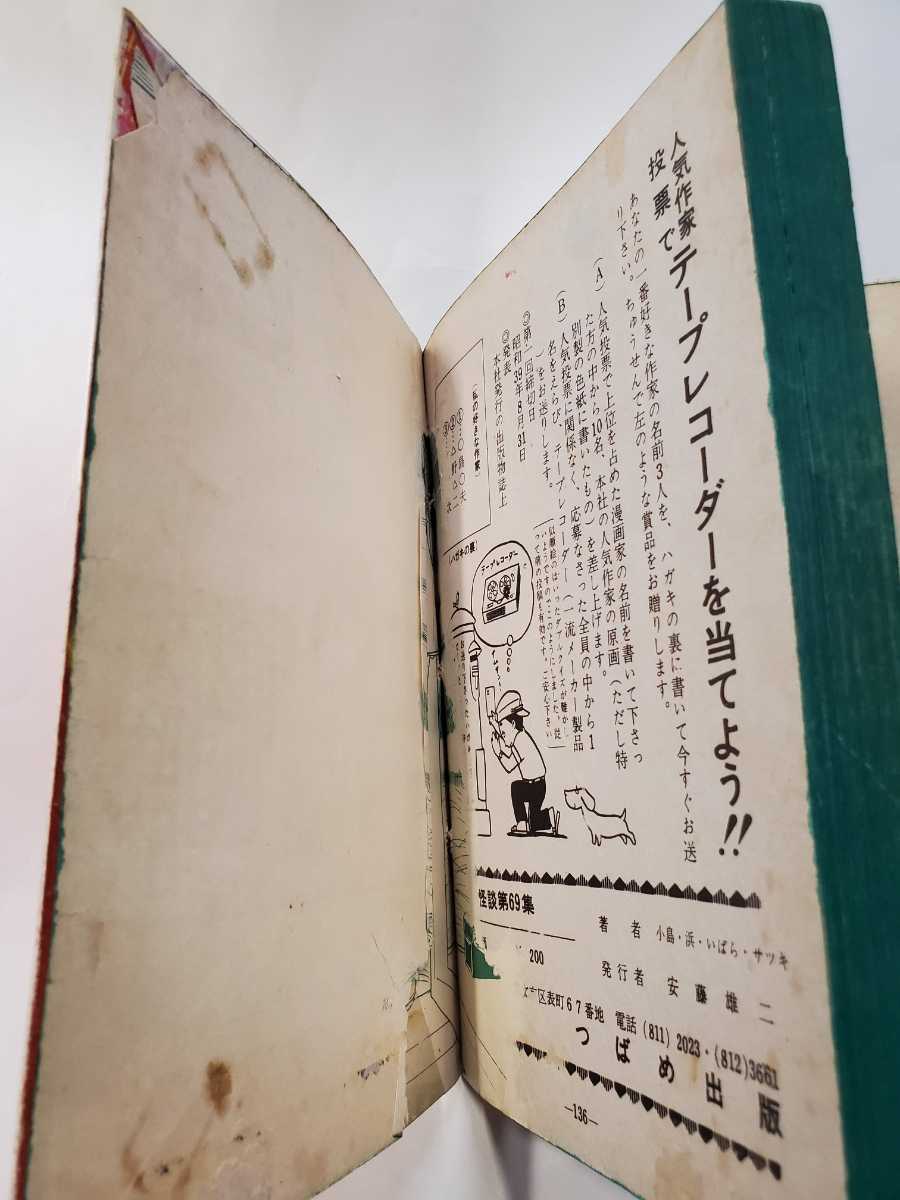 人気作家
投票で
テープレコーダーを当てよう!!
あなたの一番好きな作家の名前3人を、ハガキの裏に書いて今すぐお送
り下さい。ちゅうせんで左のような賞品をお贈りします。
(A)人気投票で上位を占めた漫画家の名前を書いて下さっ
た方の中から10名、本社の人気作家の原画(ただし特
別製の色紙に書いたもの)を差し上げます。
(B)人気投票に関係なく、応募なさった全員の中から1
名をえらび、テープレコーダー(一流メーカー製品
)をお送りします。
◎第一回締切日
昭和39年8月31日
◎発表
本社発行の出版物誌上
(私の好きな作家)
①…〇島〇夫
②…△野△二
③…
(ハガキの裏)
テープレコーダー
怪談第69集
著者 小島・浜・いばら・サツキ
200
発行者 安藤雄二
区表町67番地 電話(811)2023・(812)3661
つばめ出版
—136—